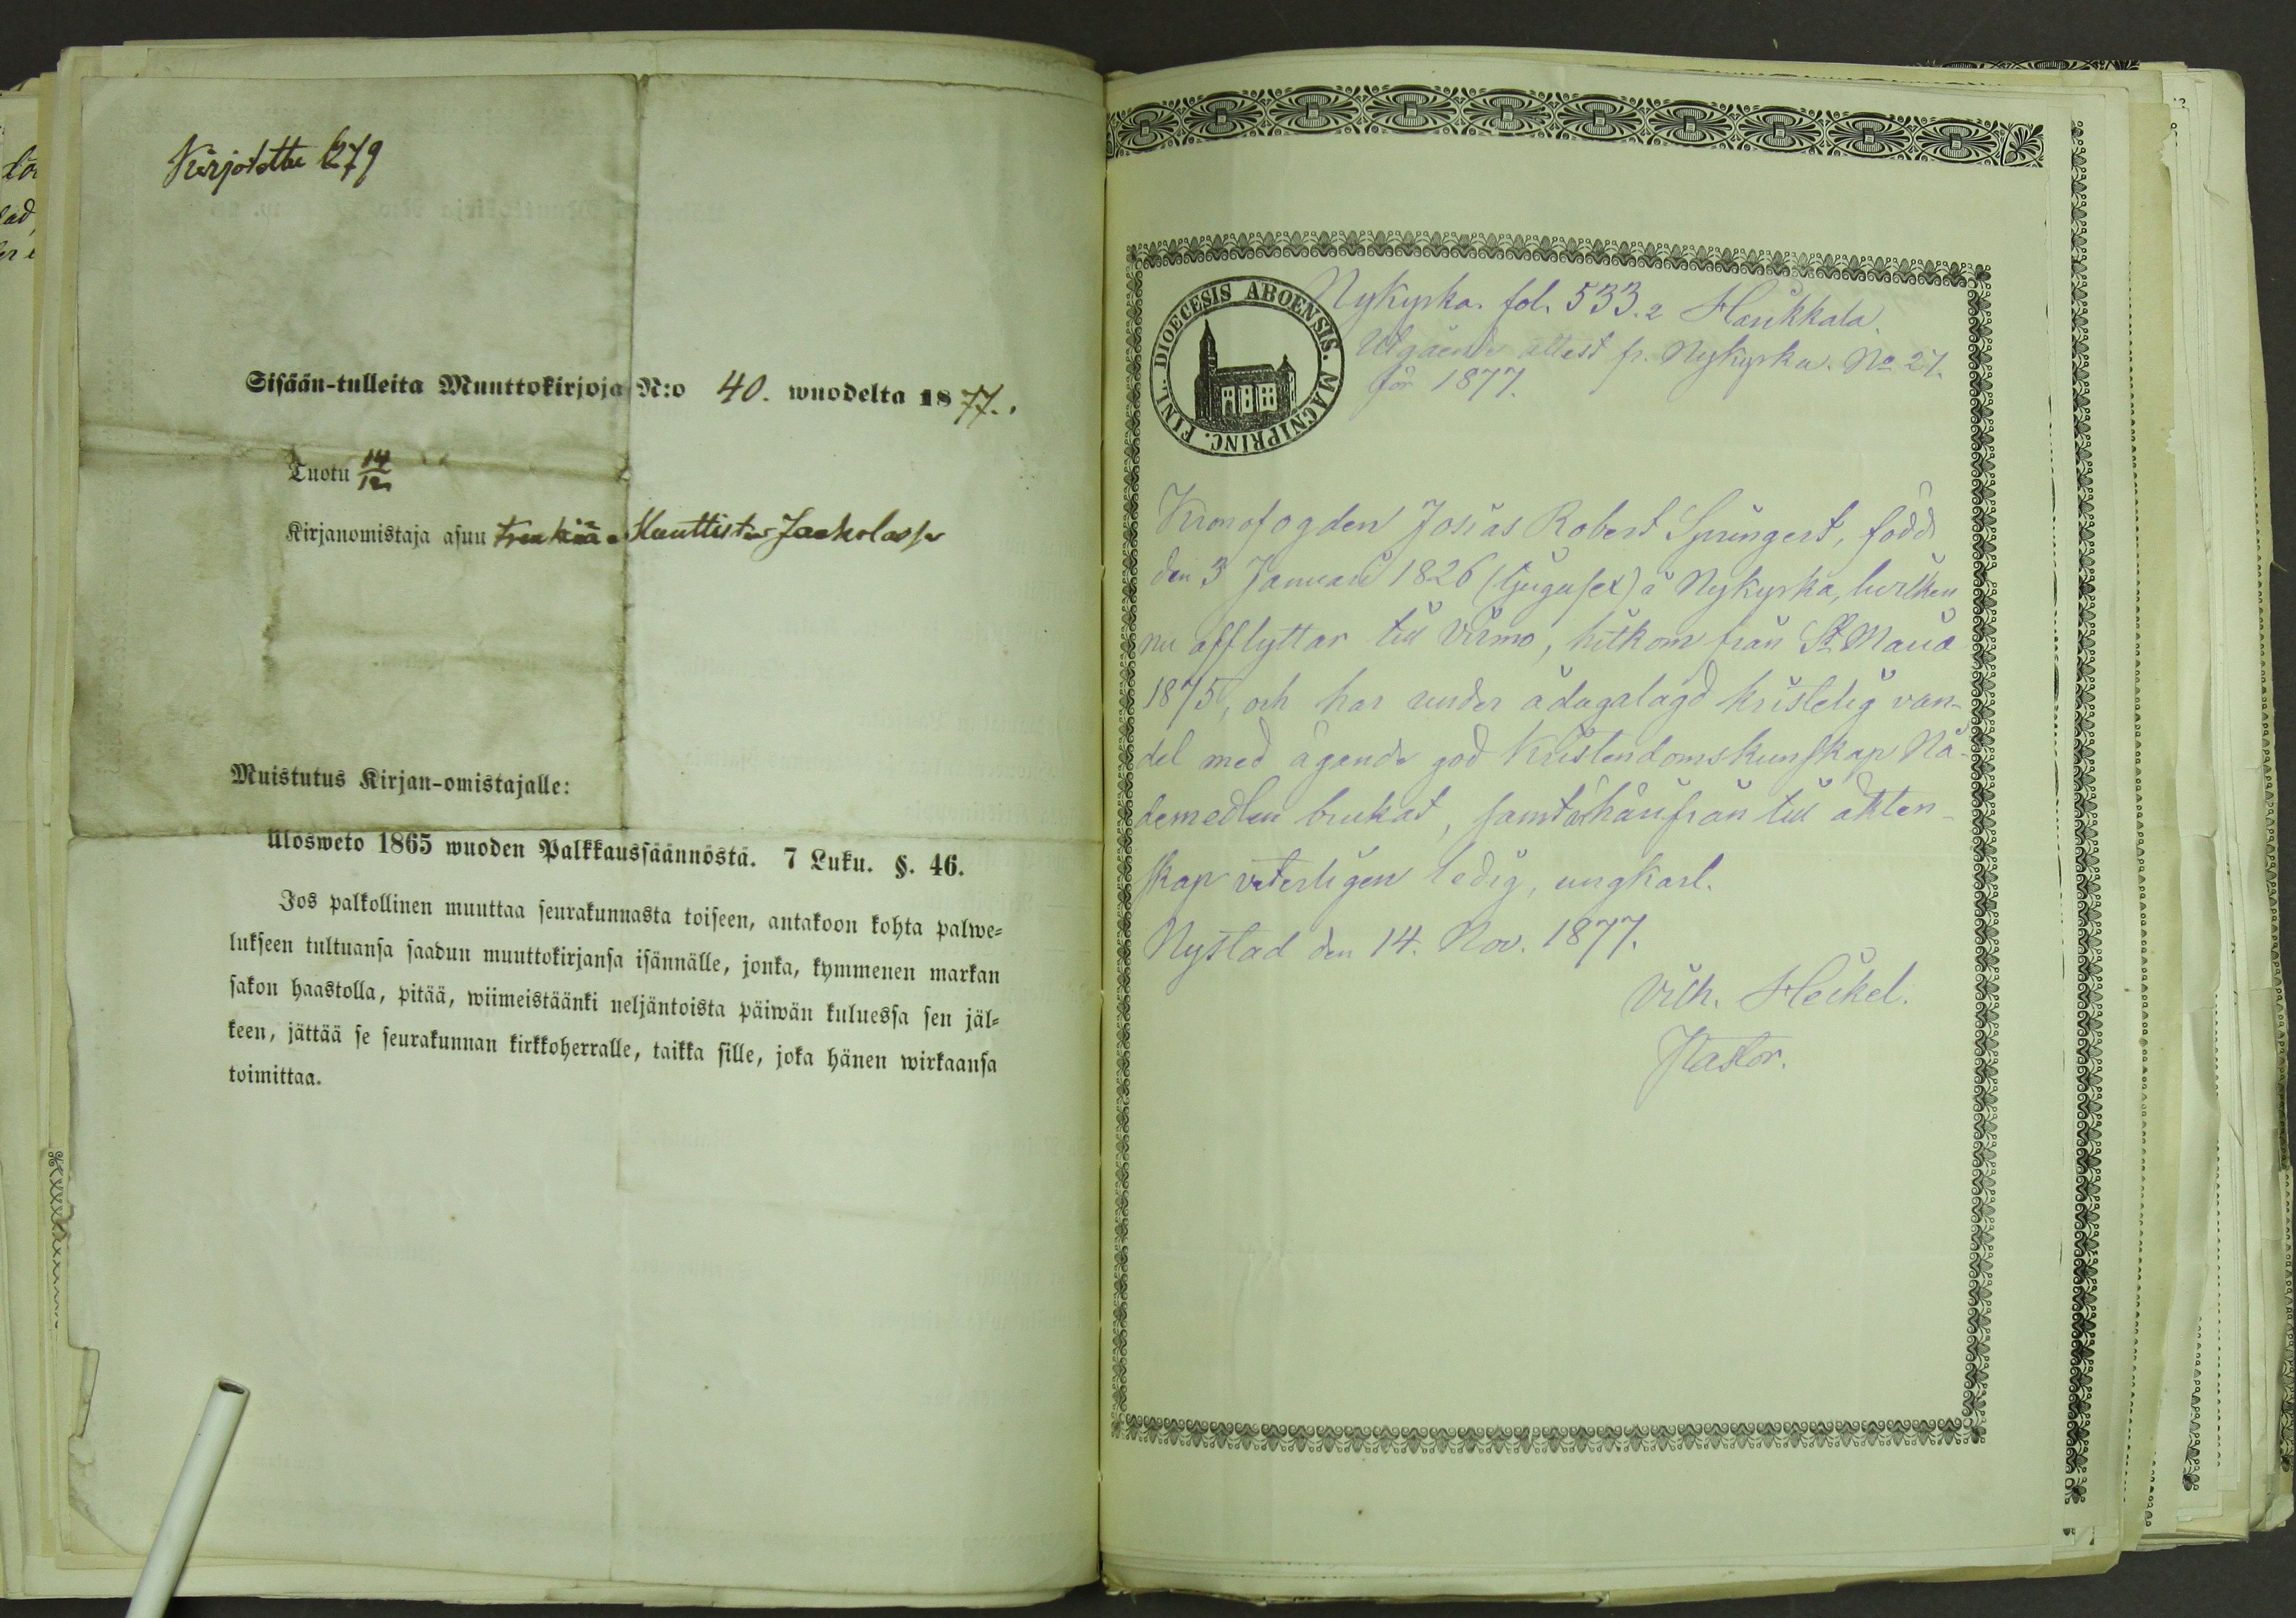 Kirjotettu 279
Sisään-tulleita Muuttokirjoja N:o 40. wuodelta 1877.
Tuotu 14/12
Kirjanomistaja asuu Jaakolassa
Muistutus Kirjan-omistajalle:
Ulosweto 1865 wuoden Palkkaussäännöstä. 7 Luku. §. 46.
Jos palkollinen muuttaa seurakunnasta toiseen, antakoon kohta palwe-
lukseen tultuansa saadun muuttokirjansa isännälle, jonka, kymmenen markan
sakon haastolla, pitää, wiimeistäänki neljäntoista päiwän kuluessa sen jäl-
keen, jättää se seurakunnan kirkkoherralle, taikka sille, joka hänen wirkaansa
toimittaa.
FINL. DIOECESIS ABOENSIS. MAGNIPRINC.
Nykyrka. fol. 533.2 Haukkala.
Utgående attest fr. Nykyrka. No 27.
för 1877.
Kronofogden Josias Robert Springert, född
den 3 Januari 1826 (tjugusex) i Nykyrka, hvilken
nu afflyttar till Virmo, hitkom från St. Maria
1875, och har under ådagalagd kristelig van-
del med ägande god Kristendomskunskap Nå-
demedlen brukat, samt är härifrån till äkten-
skap veterligen ledig, ungkarl.
Nystad den 14. Nov. 1877.
Vilh. Heikel.
Pastor.